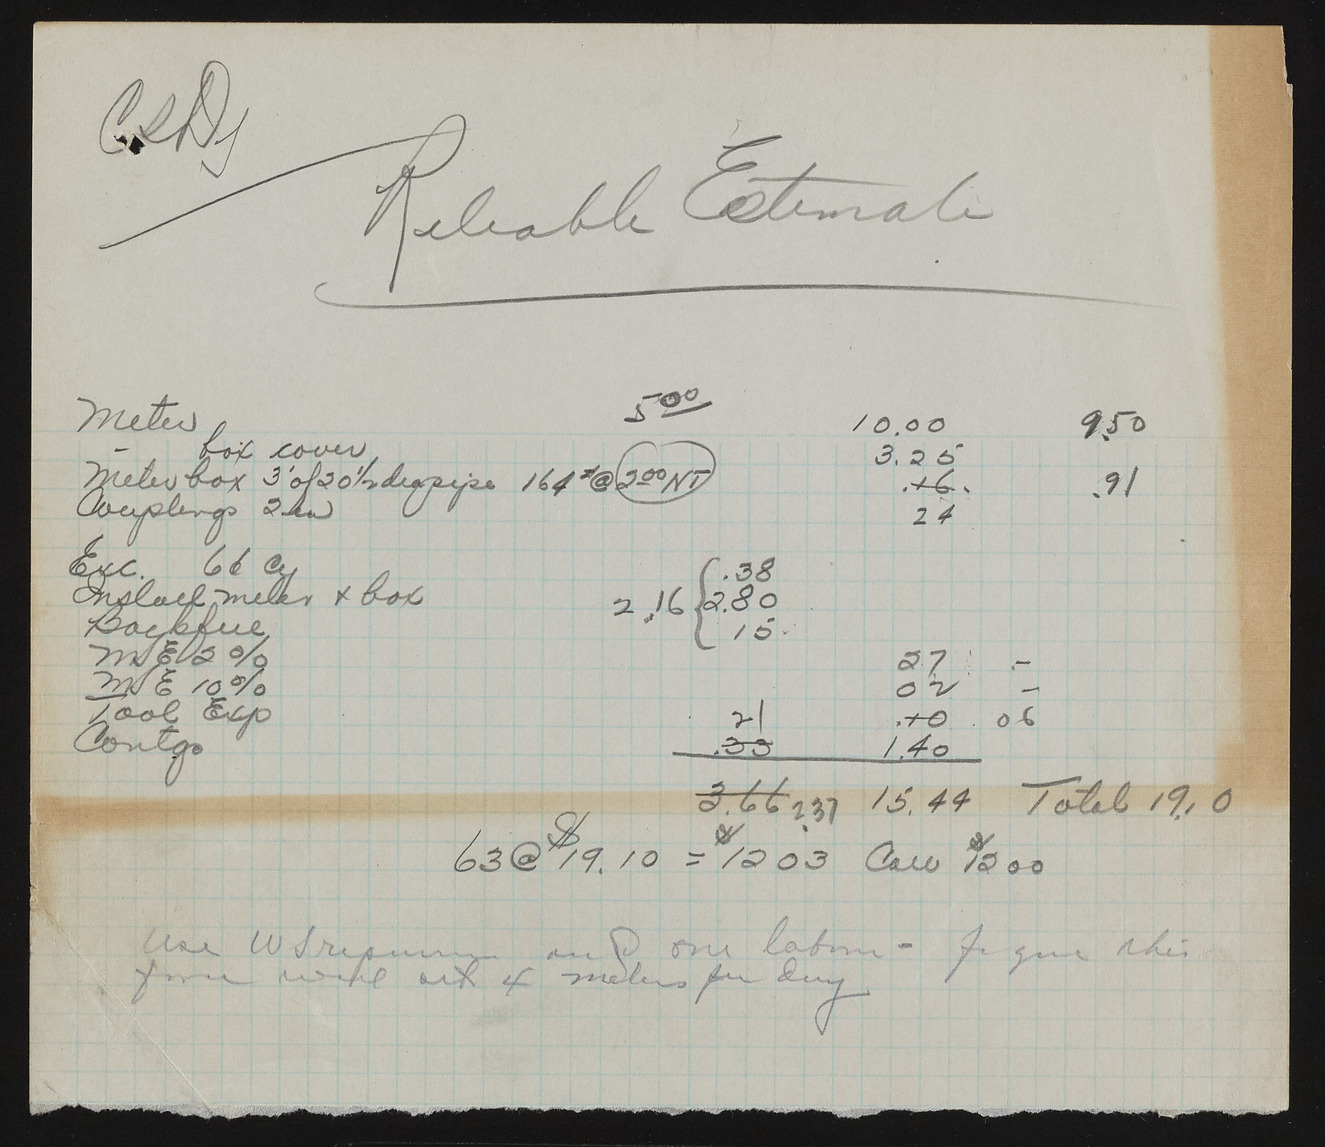 Reliable Estimate
Meter 5.00 10.00 9.50
- box cover 3.25
Meter box 3' of 20 1/2 pipe 164# @ 2.00 NT .16 .91
Couplings 2 24
Exc. 66 Cy .38
Install meter & box 2.16 2.80
Backfill 15
M E 2% 27 -
M E 10% 02 -
Tool Exp 21 .10 06
Contgs .33 1.40
3.66 2.37 15.44 Total 19.10
63 @ $19.10 = $1203 Call $1200
Use W S repairman and one laborer - figure this
force will set 4 meters per day